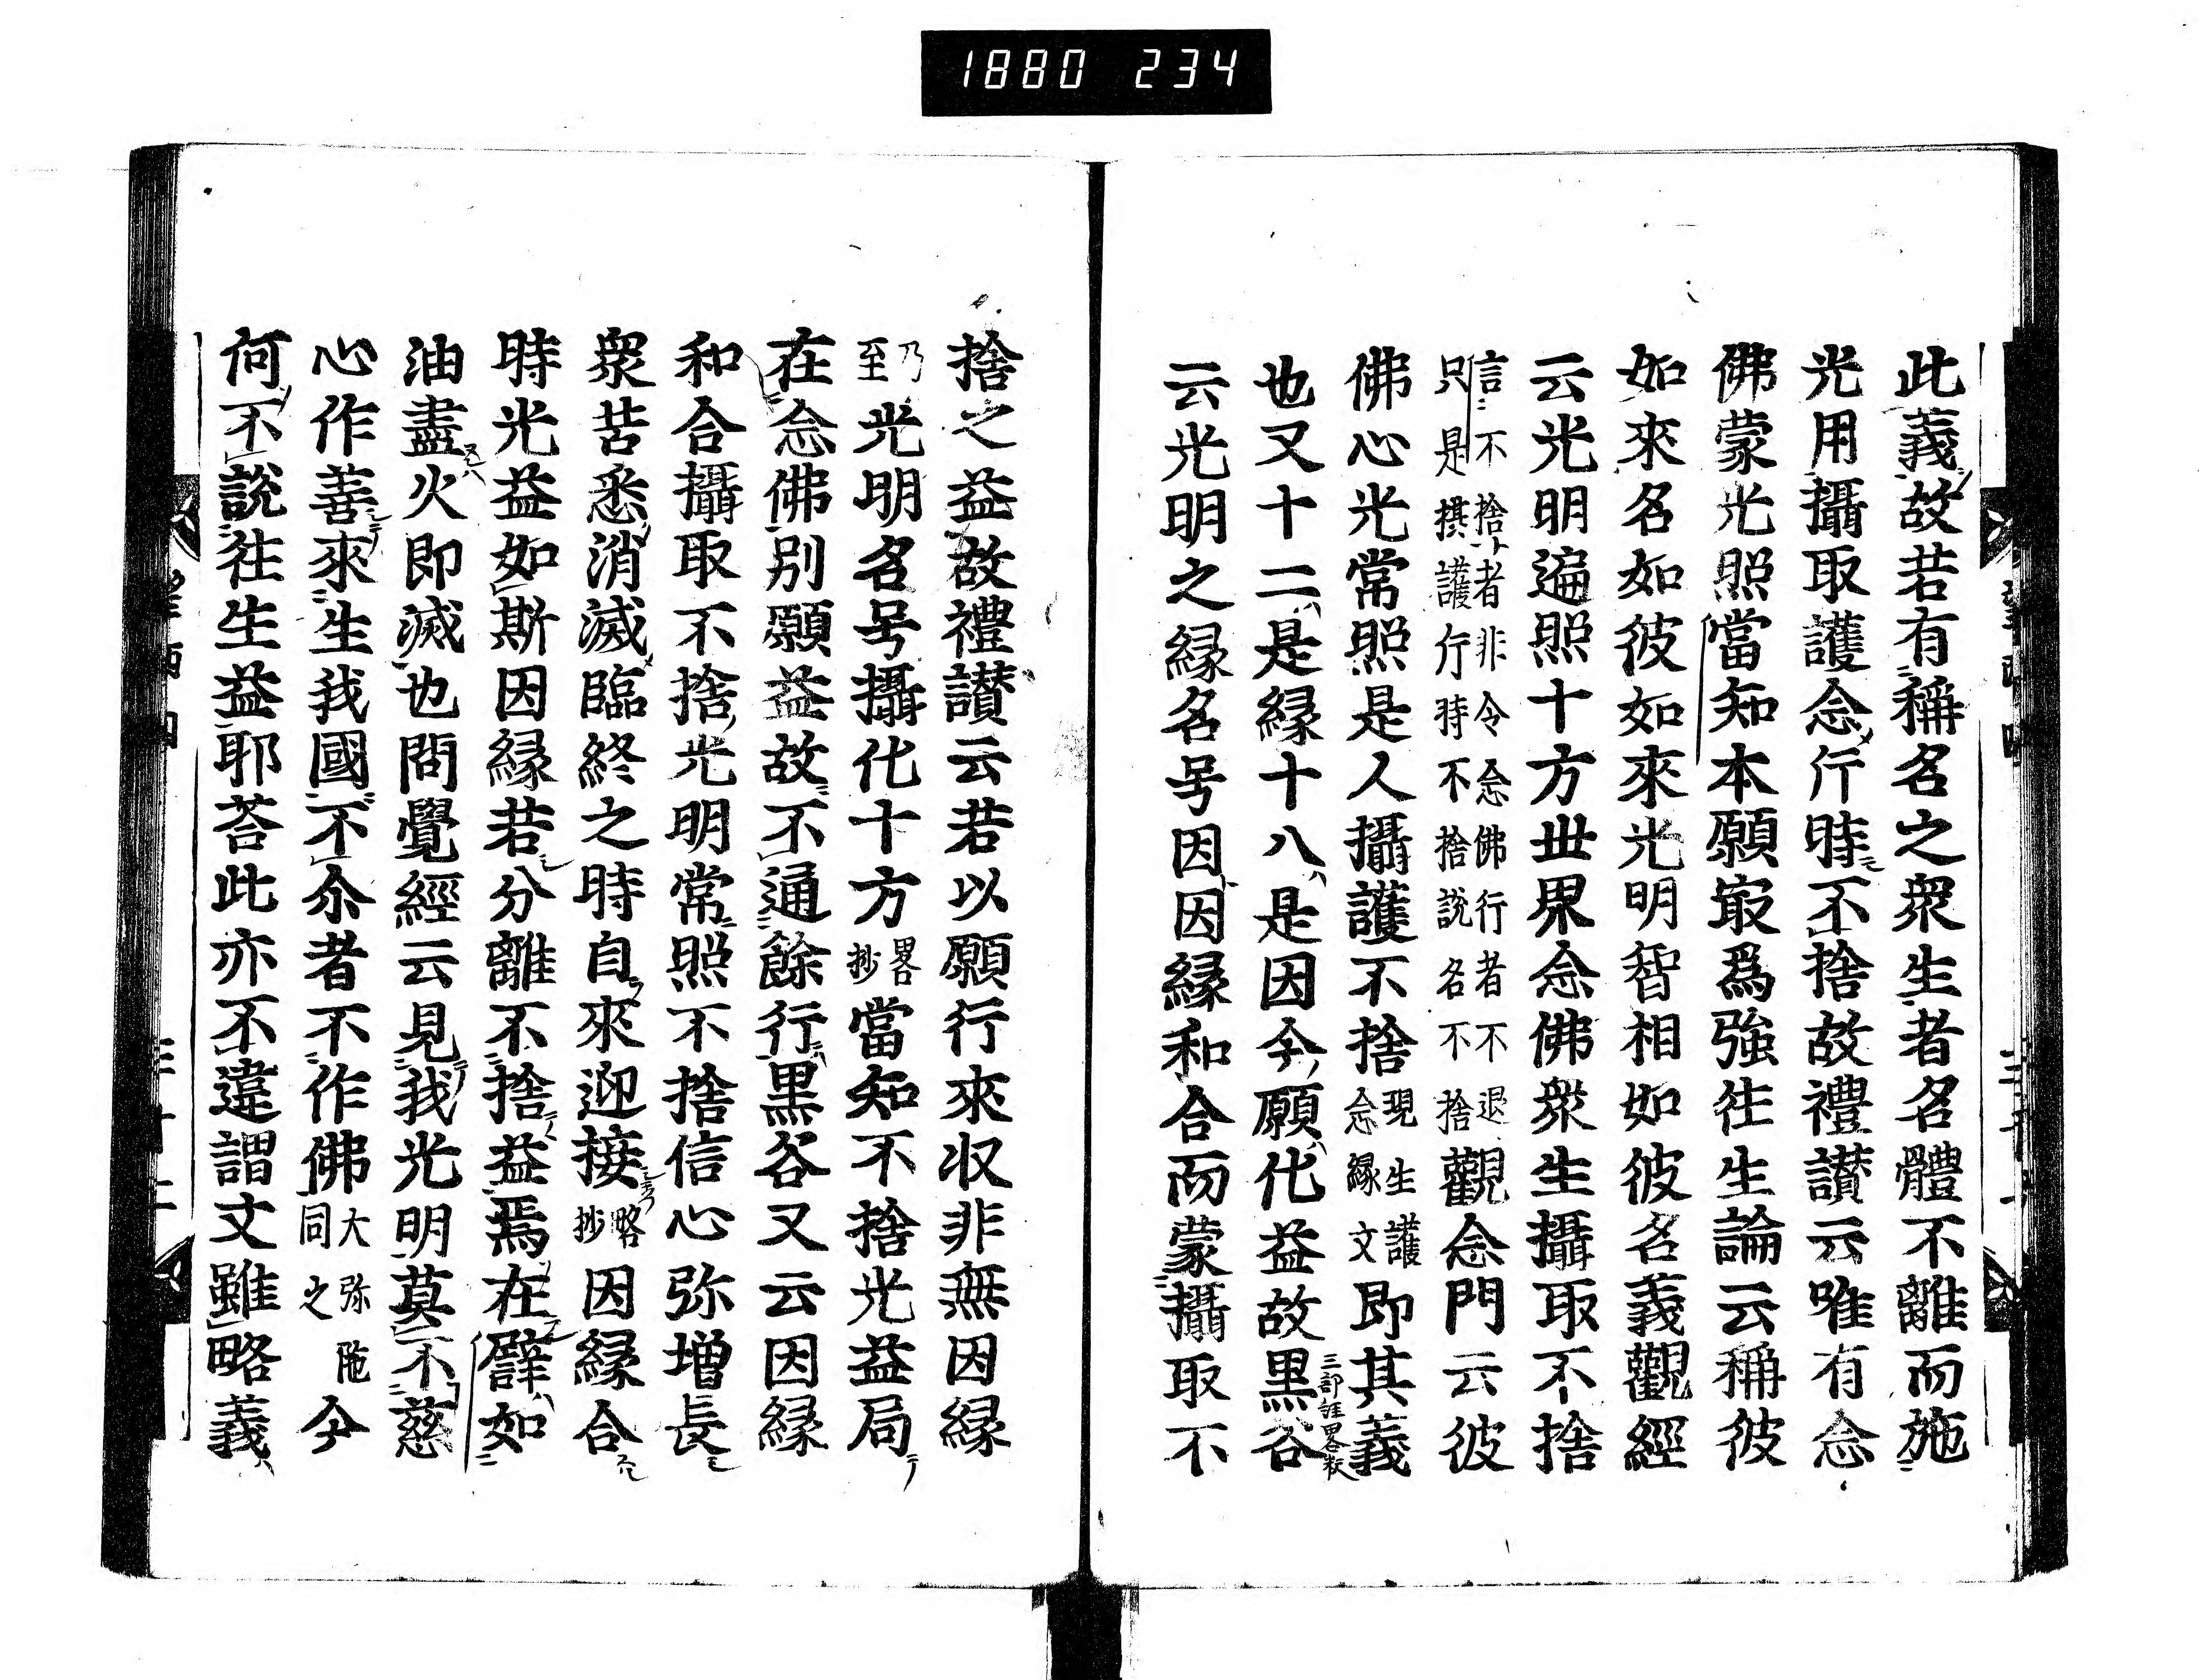 1880 234
此義故若有稱名之衆生者名體不離而施
光用攝取護念斤時不捨故禮讃云唯有念
佛蒙光照當知本願㝡爲強徃生論云稱彼
如來名如彼如來光明智相如彼名義觀經
云光明遍照十方丗界念佛衆生攝取不捨
信不捨者非令念佛行者不退
只是攝護行時不捨說名不捨
觀念門云彼
佛心光常照是人攝護不捨
現生護
念縁文
即其義
也又十二是縁十八是因今願代益故黒谷
三部註畧抜
云光明之縁名号因因縁和合而蒙攝取不
捨之益故禮讃云若以願行來収非無因縁
乃
至
光明名号攝化十方
畧
抄
當知不捨光益局
在念佛別願益故不通餘行黒谷又云因縁
和合攝取不捨光明常照不捨信心弥増長
衆苦悉消滅臨終之時自來迎接
略
抄
因縁合
時光益如斯因縁若分離不捨益焉在譬如
油盡火即滅也問覺經云見我光明莫不慈
心作善來生我國不尒者不作佛
大弥陁
同之
今
何不說徃生益耶荅此亦不違謂文雖略義